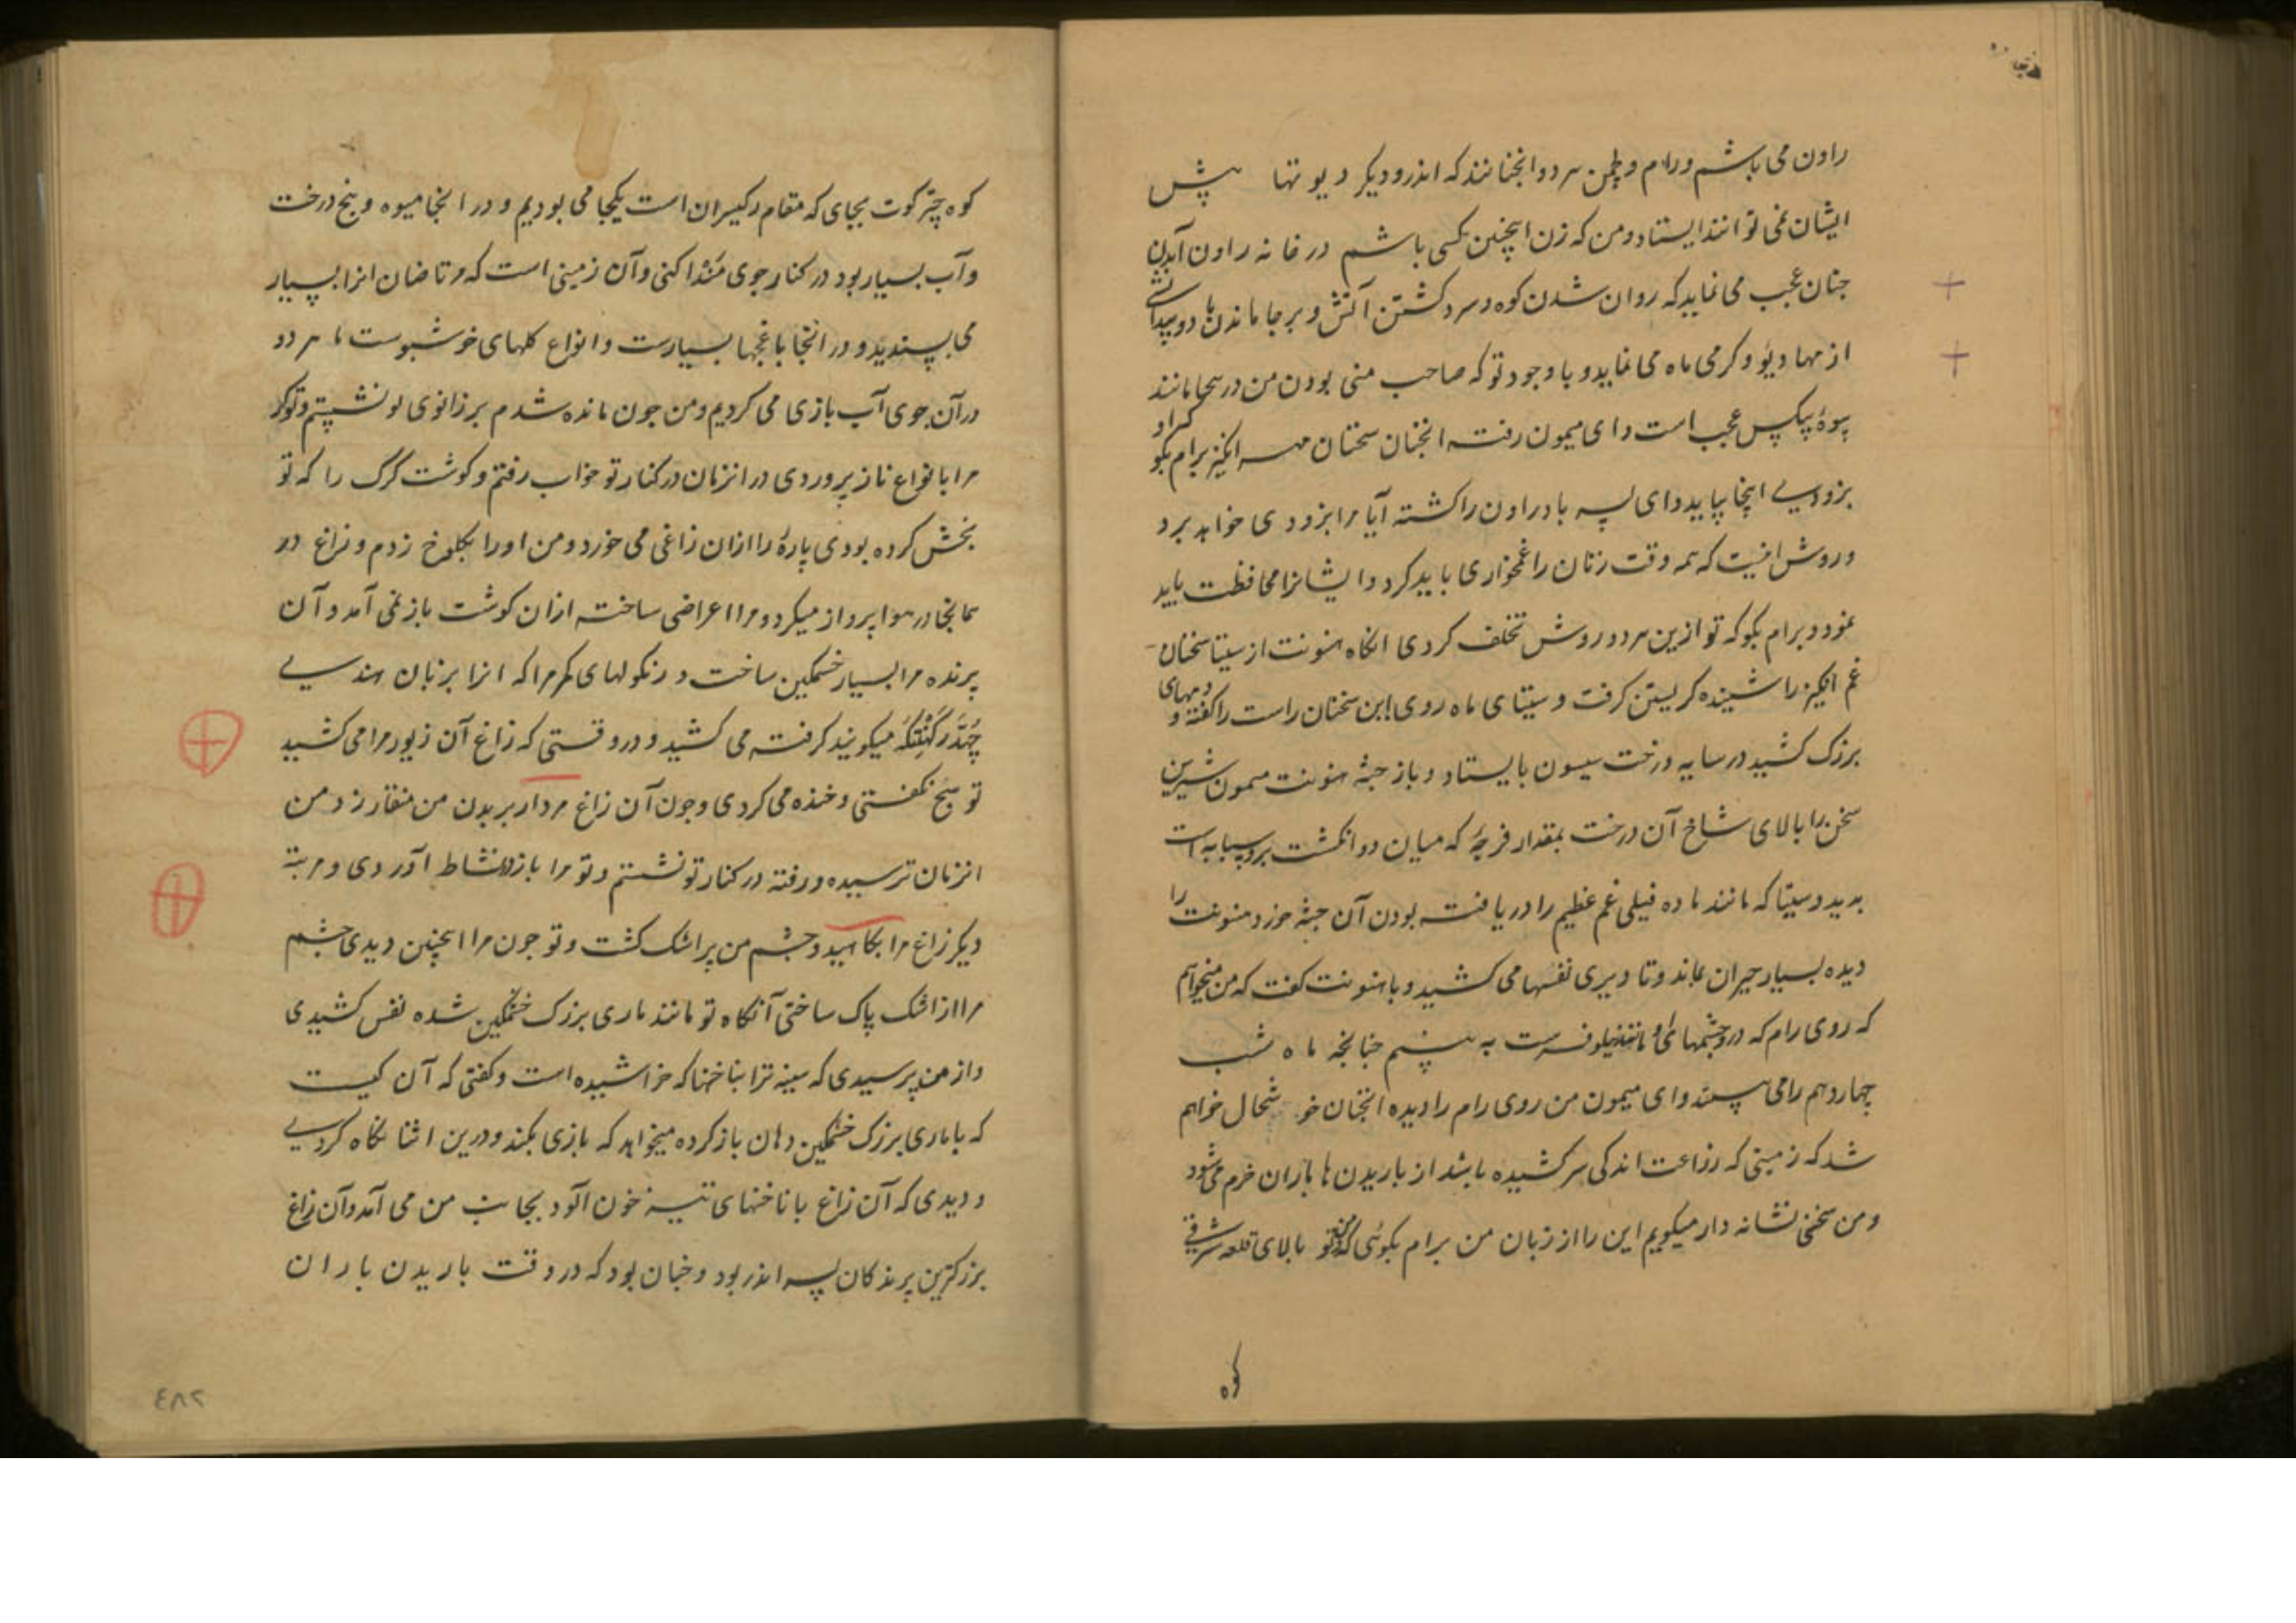 راون می باشم و رام و لچمن هر دو انجنانند که اندر و دیکر دیوتها پیش
ایشان نمی توانند ایستاد و من که زن اینچنین کسی باشم در خانه راون آمدن
جنان عجب می نماید که روان شدن کوه و سرد کشتن آتش و برجا ماندن باد و پیدا
از مهادیو و کرمی ماه می نماید و با وجود تو که صاحب منی بودن من در ینجا مانند
بیوهٔ بیکس عجب است و ای میمون رفته انجنان سخنان مهر انکیز برام بکو که او
بزودی اینجا بیاید و ای پسر باد راون را کشته آیا مرا بزودی خواهد برد
و روش اینست که همه وقت زنان را غمخواری باید کرد و ایشانرا محافظت باید
نمود و برام بکو که تو ازین هر دو روش تخلف کردی انکاه هنونت از سیتا سخنان
غم انکیز را شنیده کریستن کرفت و سیتای ماه روی این سخنان راست را کفته و دمهای
بزرک کشید در سایه درخت سیسون بایستاد و باز جثه هنونت میمون شیرین
سخن را بالای شاخ آن درخت بمقدار فرجهٔ که میان دو انکشت نر و سبابه است
بدید و سیتا که مانند ماده فیلی غم عظیم را دریافته بود آن جثه خورد هنونت را
دیده بسیار حیران بماند و تا دیری نفسها می کشید و با هنونت کفت که من میخواهم
که روی رام که در و چشمهای او مانند نیلوفرست به بینم جنانچه ماه شب
چهاردهم را می بینند و ای میمون من روی رام را دیده انجنان خوشحال خواهم
شد که زمینی که زراعت اندکی سر کشیده باشد از باریدن باران خرم می شود
و من سخنی نشانه دار میکویم این را از زبان من برام بکوئی که من و تو بالای قلعه شرقی
کوه
کوه چترکوت بجای که مقام رکیسران است یکجا می بودیم و در انجا میوه و بیخ درخت
و آب بسیار بود در کنار جوی منداکنی و آن زمینی است که مرتاضان انرا بسیار
می پسندیدند و در انجا باغچها بسیارست و انواع کلهای خوشبوست ما هر دو
در آن جوی آب بازی می کردیم و من جون مانده شدم بر زانوی تو نشستم و تو که
مرا بانواع ناز پروردی در انزمان در کنار تو خواب رفتم و کوشت کرک را که تو
بخش کرده بودی پارهٔ را ازان زاغی می خورد و من او را بکلوخ زدم و زاغ در
همانجا در هوا پرواز میکرد و مرا اعراضی ساخته ازان کوشت باز نمی آمد و آن
پرنده مرا بسیار خشمکین ساخت و زنکولهای کمر مرا که انرا بزبان هندی
چهدرکهنتکه میکویند کرفته می کشید و در وقتی که زاغ آن زیور مرا می کشید
تو هیچ نکفتی و خنده می کردی و جون آن زاغ مردار بر بدن من منقار زد من
انزمان ترسیده و رفته در کنار تو نشستم و تو مرا باز در نشاط آوردی و مرتبه
دیکر زاغ مرا بکاهید و چشم من پر اشک کشت و تو جون مرا اینچنین دیدی چشم
مرا از اشک پاک ساختی آنکاه تو مانند ماری بزرک خشمکین شده نفس کشیدی
و از من پرسیدی که سینه ترا بناخنها که خراشیده است و کفتی که آن کیست
که با ماری بزرک خشمکین دهان باز کرده میخواهد که بازی بکند و درین اثنا نکاه کردی
و دیدی که آن زاغ با ناخنهای تیز خون آلود بجانب من می آمد و آن زاغ
بزرکترین پرندکان پسر اندر بود و جنان بود که در وقت باریدن باران
۲۸٤